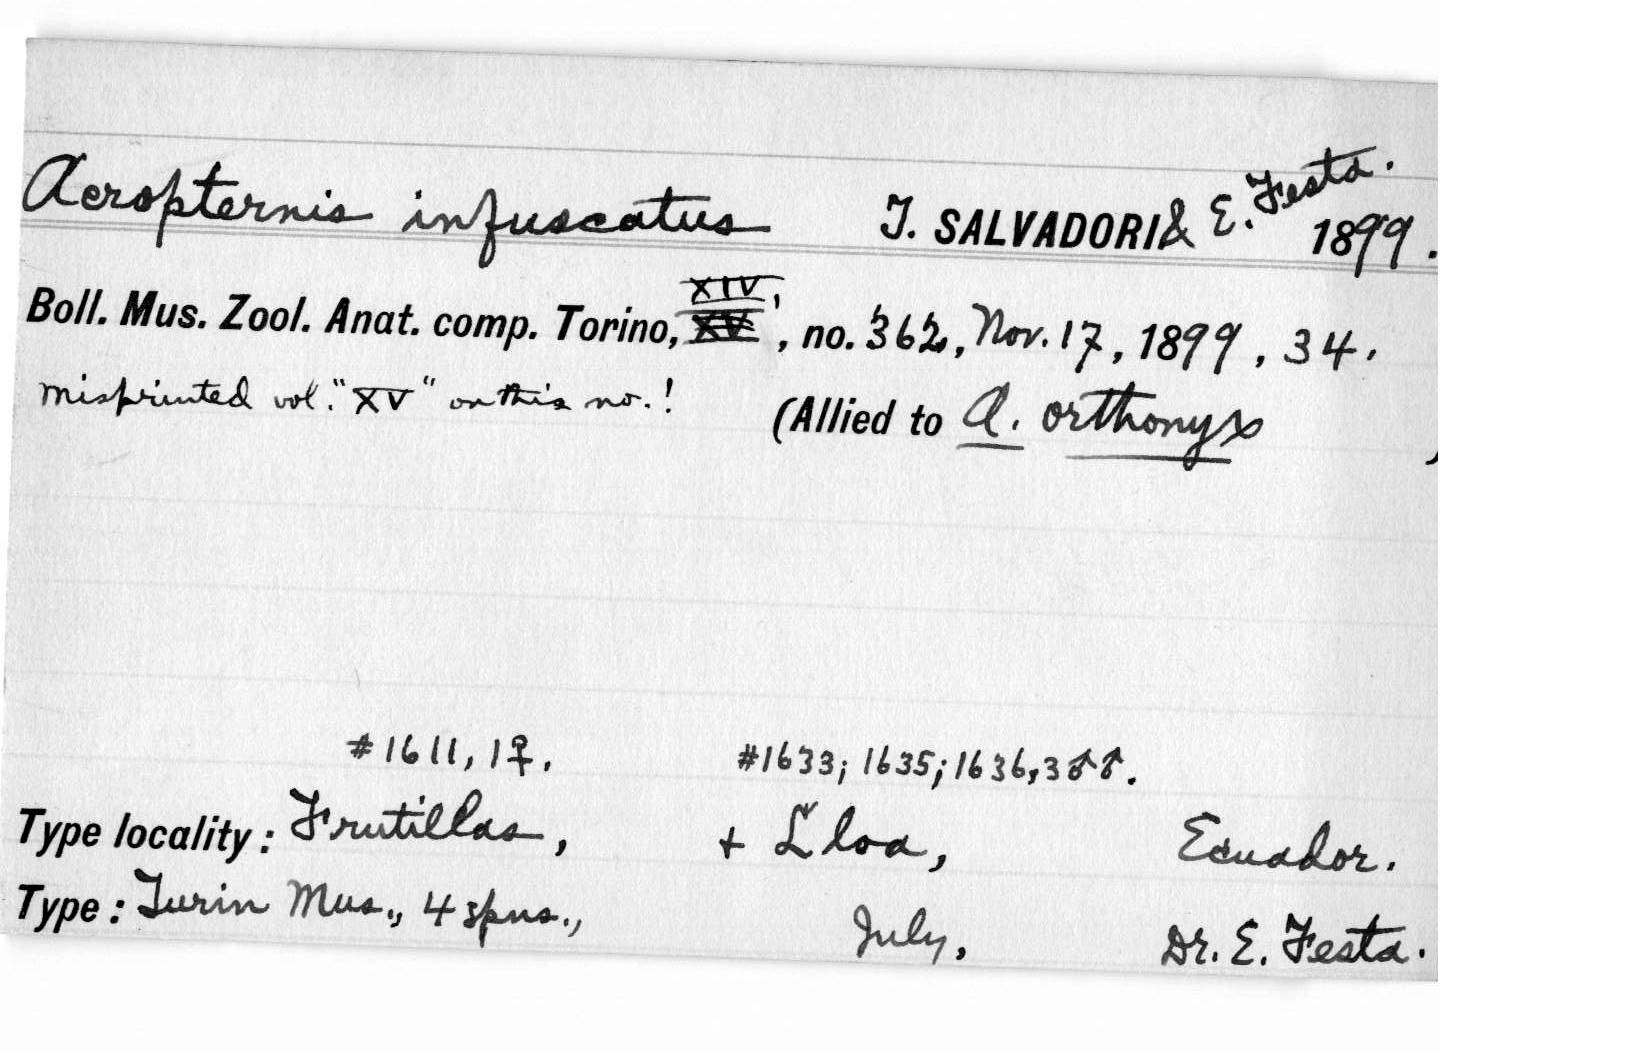 Acropternis infuscatus T. SALVADORI & E. Festa. 1899.
Boll. Mus. Zool. Anat. comp. Torino, XIV, XV, no. 362, Nov. 17, 1899, 34.
Misprinted vol. "XV" on this no.! (Allied to A. orthonyx )
#1611, 1♀. #1633; 1635; 1636, 3♂♂.
Type locality: Frutillas, + Lloa, Ecuador.
Type: Turin Mus., 4 spns., July, Dr. E. Festa.